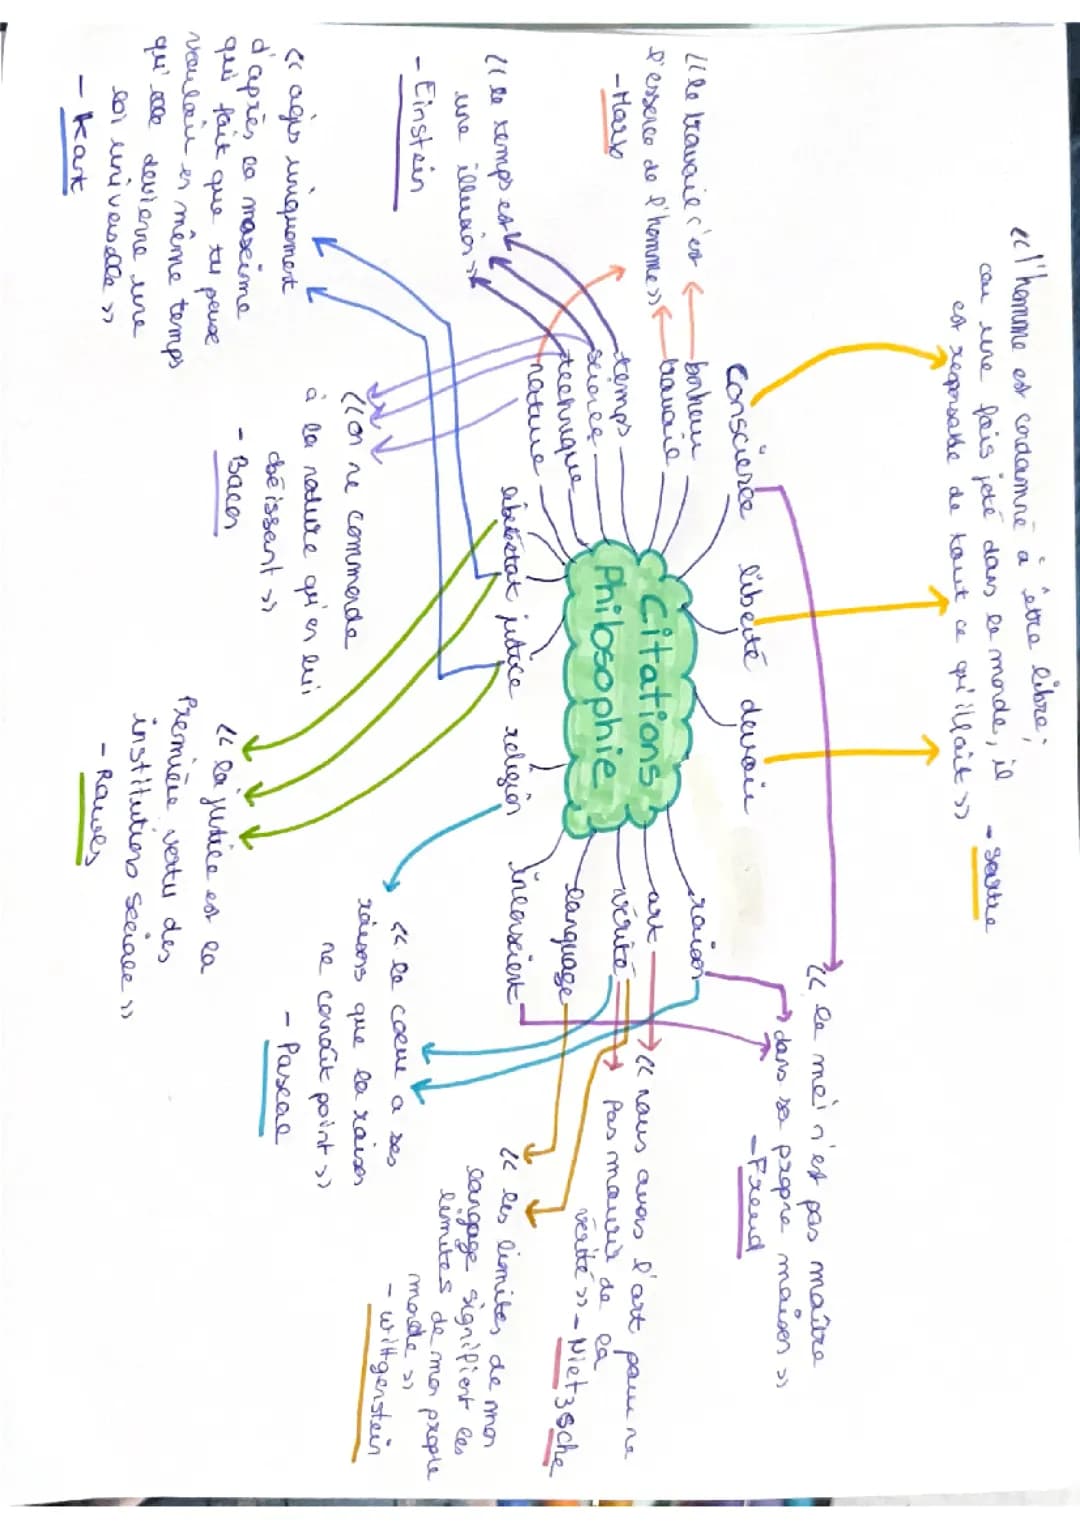 « l'homme est condamné à être libre ;
car une fois jeté dans le monde, il
est responsable de tout ce qu'il fait »
- Sartre
« le moi n'est pas maître
dans sa propre maison »
- Freud
« le travail c'est
l'essence de l'homme »
- Marx
« le temps est
une illusion »
- Einstein
conscience
liberté
devoir
bonheur
travail
temps
science
technique
nature
Citations
Philosophie
raison
art
vérité
language
inconscient
liberté
état
justice
religion
« nous avons l'art pour ne
pas mourir de la
vérité » - Nietzsche
« les limites de mon
langage signifient les
limites de mon propre
monde »
- Wittgenstein
« le coeur a ses
raisons que la raison
ne connaît point »
- Pascal
« on ne commande
à la nature qu'en lui
obéissant »
- Bacon
« agis uniquement
d'après la maxime
qui fait que tu peux
vouloir en même temps
qu'elle devienne une
loi universelle »
- Kant
« la justice est la
Première vertu des
institutions sociale »
- Rawles